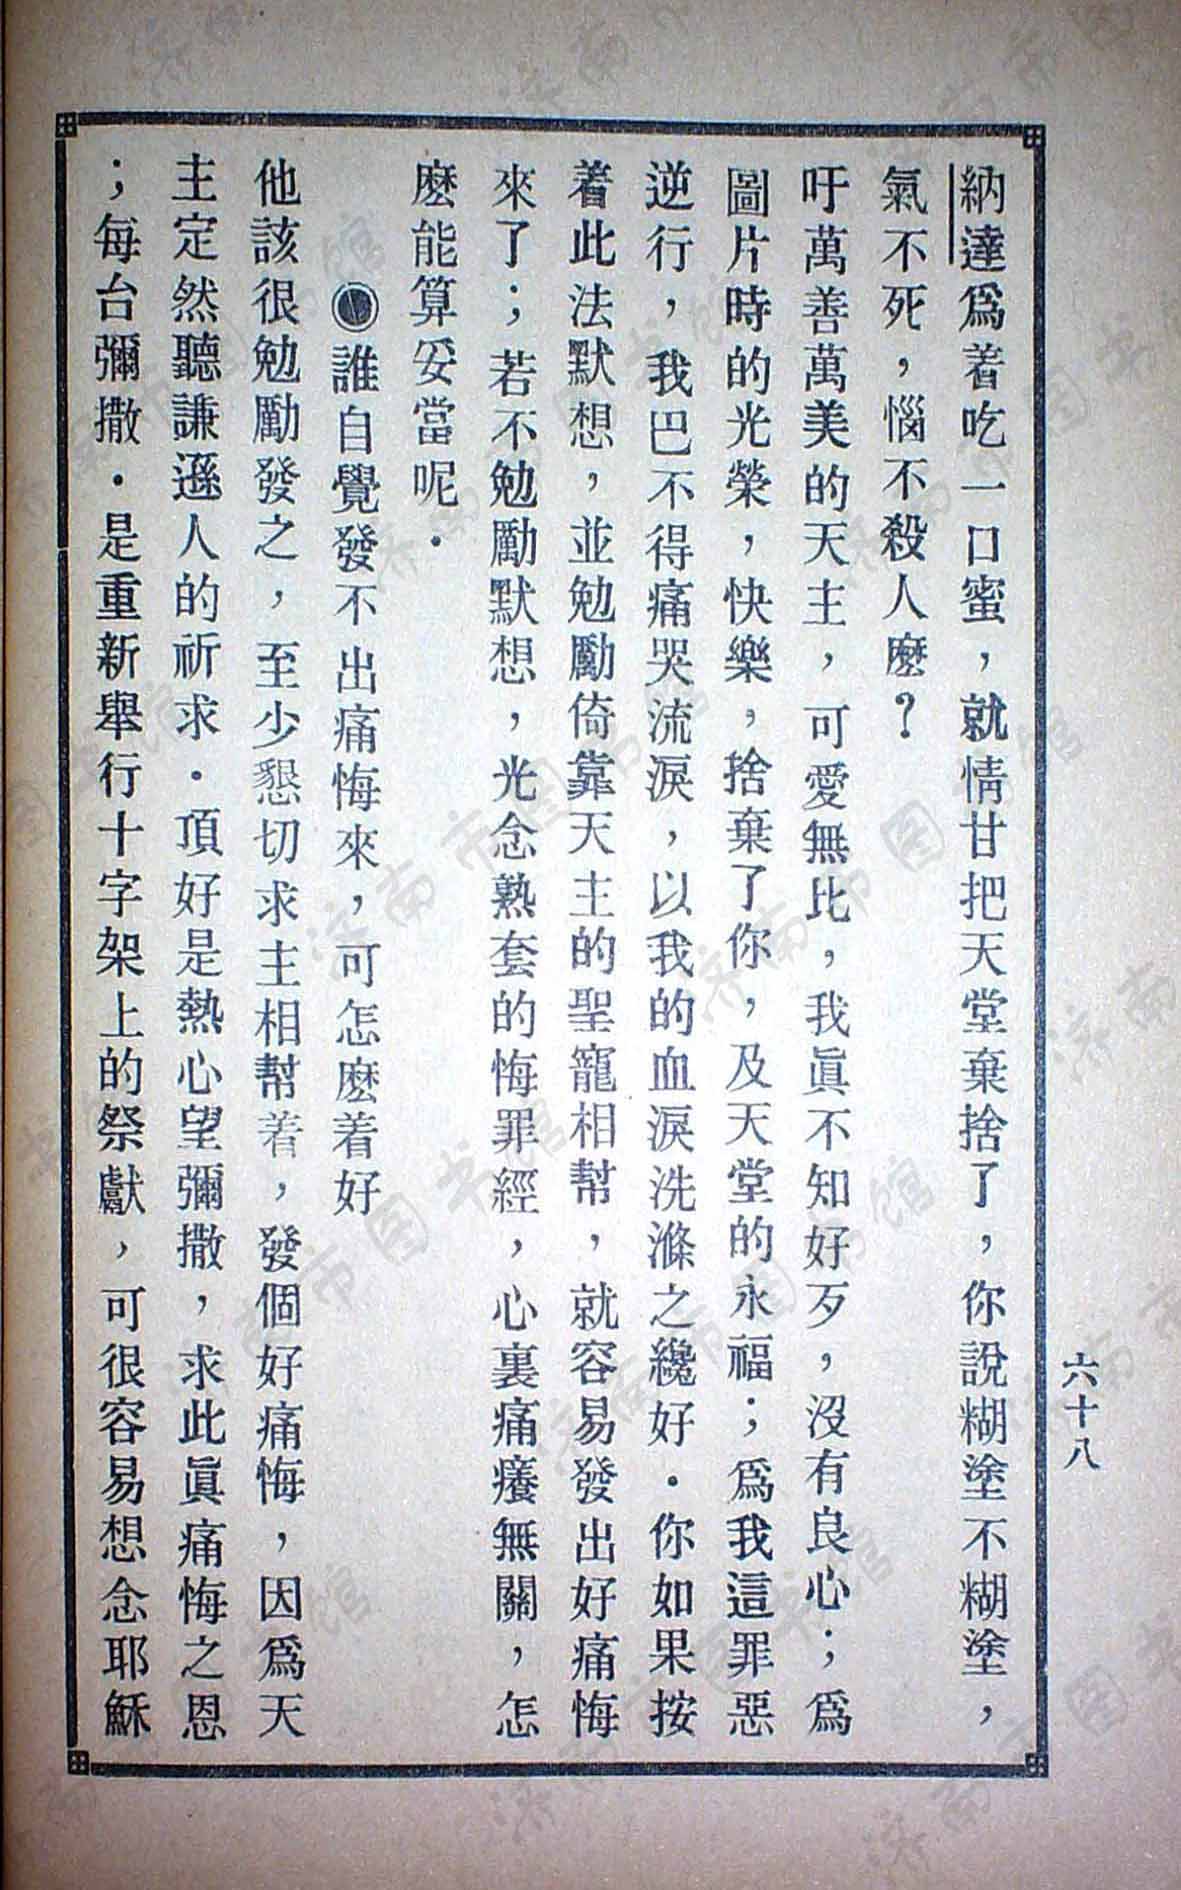 六十八
納達爲着吃一口蜜，就情甘把天堂棄捨了，你說糊塗不糊塗，
氣不死，惱不殺人麽？
吁萬善萬美的天主，可愛無比，我眞不知好歹，沒有良心；爲
圖片時的光榮，快樂，捨棄了你，及天堂的永福；爲我這罪惡
逆行，我巴不得痛哭流淚，以我的血淚洗滌之纔好．你如果按
着此法默想，並勉勵倚靠天主的聖寵相幫，就容易發出好痛悔
來了；若不勉勵默想，光念熟套的悔罪經，心裏痛癢無關，怎
麽能算妥當呢．
●誰自覺發不出痛悔來，可怎麽着好
他該很勉勵發之，至少懇切求主相幫着，發個好痛悔，因爲天
主定然聽謙遜人的祈求．頂好是熱心望彌撒，求此眞痛悔之恩
；每台彌撒．是重新舉行十字架上的祭獻，可很容易想念耶穌
济南市图书馆